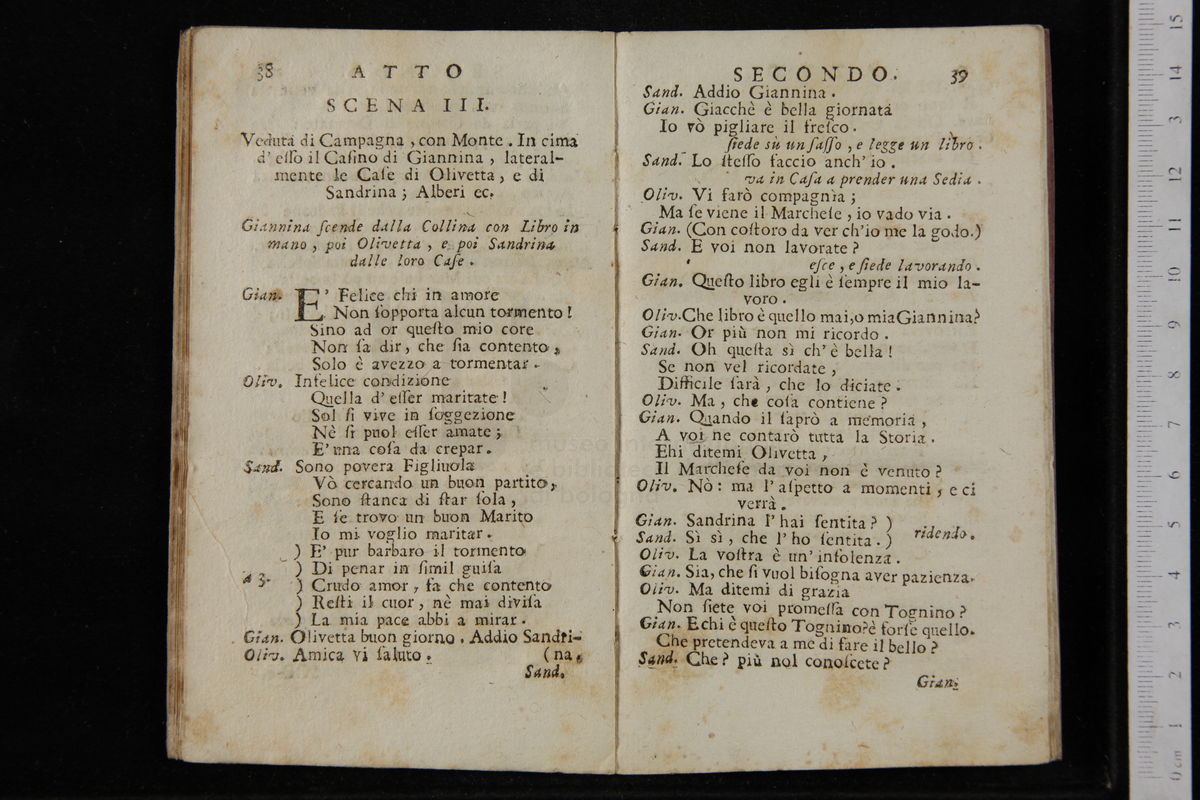 38 ATTO
SCENA III.
Veduta di Campagna, con Monte. In cima
d' esſo il Caſino di Giannina, lateral-
mente le Caſe di Olivetta, e di
Sandrina; Alberi ec.
Giannina ſcende dalla Collina con Libro in
mano, poi Olivetta, e poi Sandrina
dalle loro Caſe.
Gian. E' Felice chi in amore
Non ſopporta alcun tormento!
Sino ad or queſto mio core
Non ſa dir, che ſia contento,
Solo è avezzo a tormentar.
Oliv. Infelice condizione
Quella d' eſſer maritate!
Sol ſi vive in ſoggezione
Nè ſi puol eſſer amate;
E' una coſa da crepar.
Sand. Sono povera Figliuola
Vò cercando un buon partito,
Sono ſtanca di ſtar ſola,
E ſe trovo un buon Marito
Io mi voglio maritar.
) E' pur barbaro il tormento
) Di penar in ſimil guiſa
a 3. ) Crudo amor, fa che contento
) Reſti il cuor, nè mai diviſa
) La mia pace abbi a mirar.
Gian. Olivetta buon giorno. Addio Sandri-
Oliv. Amica vi ſaluto. (na.
Sand.
SECONDO. 39
Sand. Addio Giannina.
Gian. Giacchè è bella giornata
Io vò pigliare il freſco.
ſiede sù un ſaſſo, e legge un libro.
Sand. Lo ſteſſo faccio anch' io.
va in Caſa a prender una Sedia.
Oliv. Vi farò compagnia;
Ma ſe viene il Marcheſe, io vado via.
Gian. (Con coſtoro da ver ch'io me la godo.)
Sand. E voi non lavorate?
eſce, e ſiede lavorando.
Gian. Queſto libro egli è ſempre il mio la-
voro.
Oliv. Che libro è quello mai, o mia Giannina?
Gian. Or più non mi ricordo.
Sand. Oh queſta sì ch' è bella!
Se non vel ricordate,
Difficile ſarà, che lo diciate.
Oliv. Ma, che coſa contiene?
Gian. Quando il ſaprò a memoria,
A voi ne contarò tutta la Storia.
Ehi ditemi Olivetta,
Il Marcheſe da voi non è venuto?
Oliv. Nò: ma l' aſpetto a momenti, e ci
verrà.
Gian. Sandrina l' hai ſentita? )
Sand. Sì sì, che l' ho ſentita. ) ridendo.
Oliv. La voſtra è un' inſolenza.
Gian. Sia, che ſi vuol biſogna aver pazienza.
Oliv. Ma ditemi di grazia
Non ſiete voi promeſſa con Tognino?
Gian. E chi è queſto Tognino? è forſe quello.
Che pretendeva a me di fare il bello?
Sand. Che? più nol conoſcete?
Gian.
15
14
13
12
11
10
9
8
7
6
5
4
3
2
1
0 cm